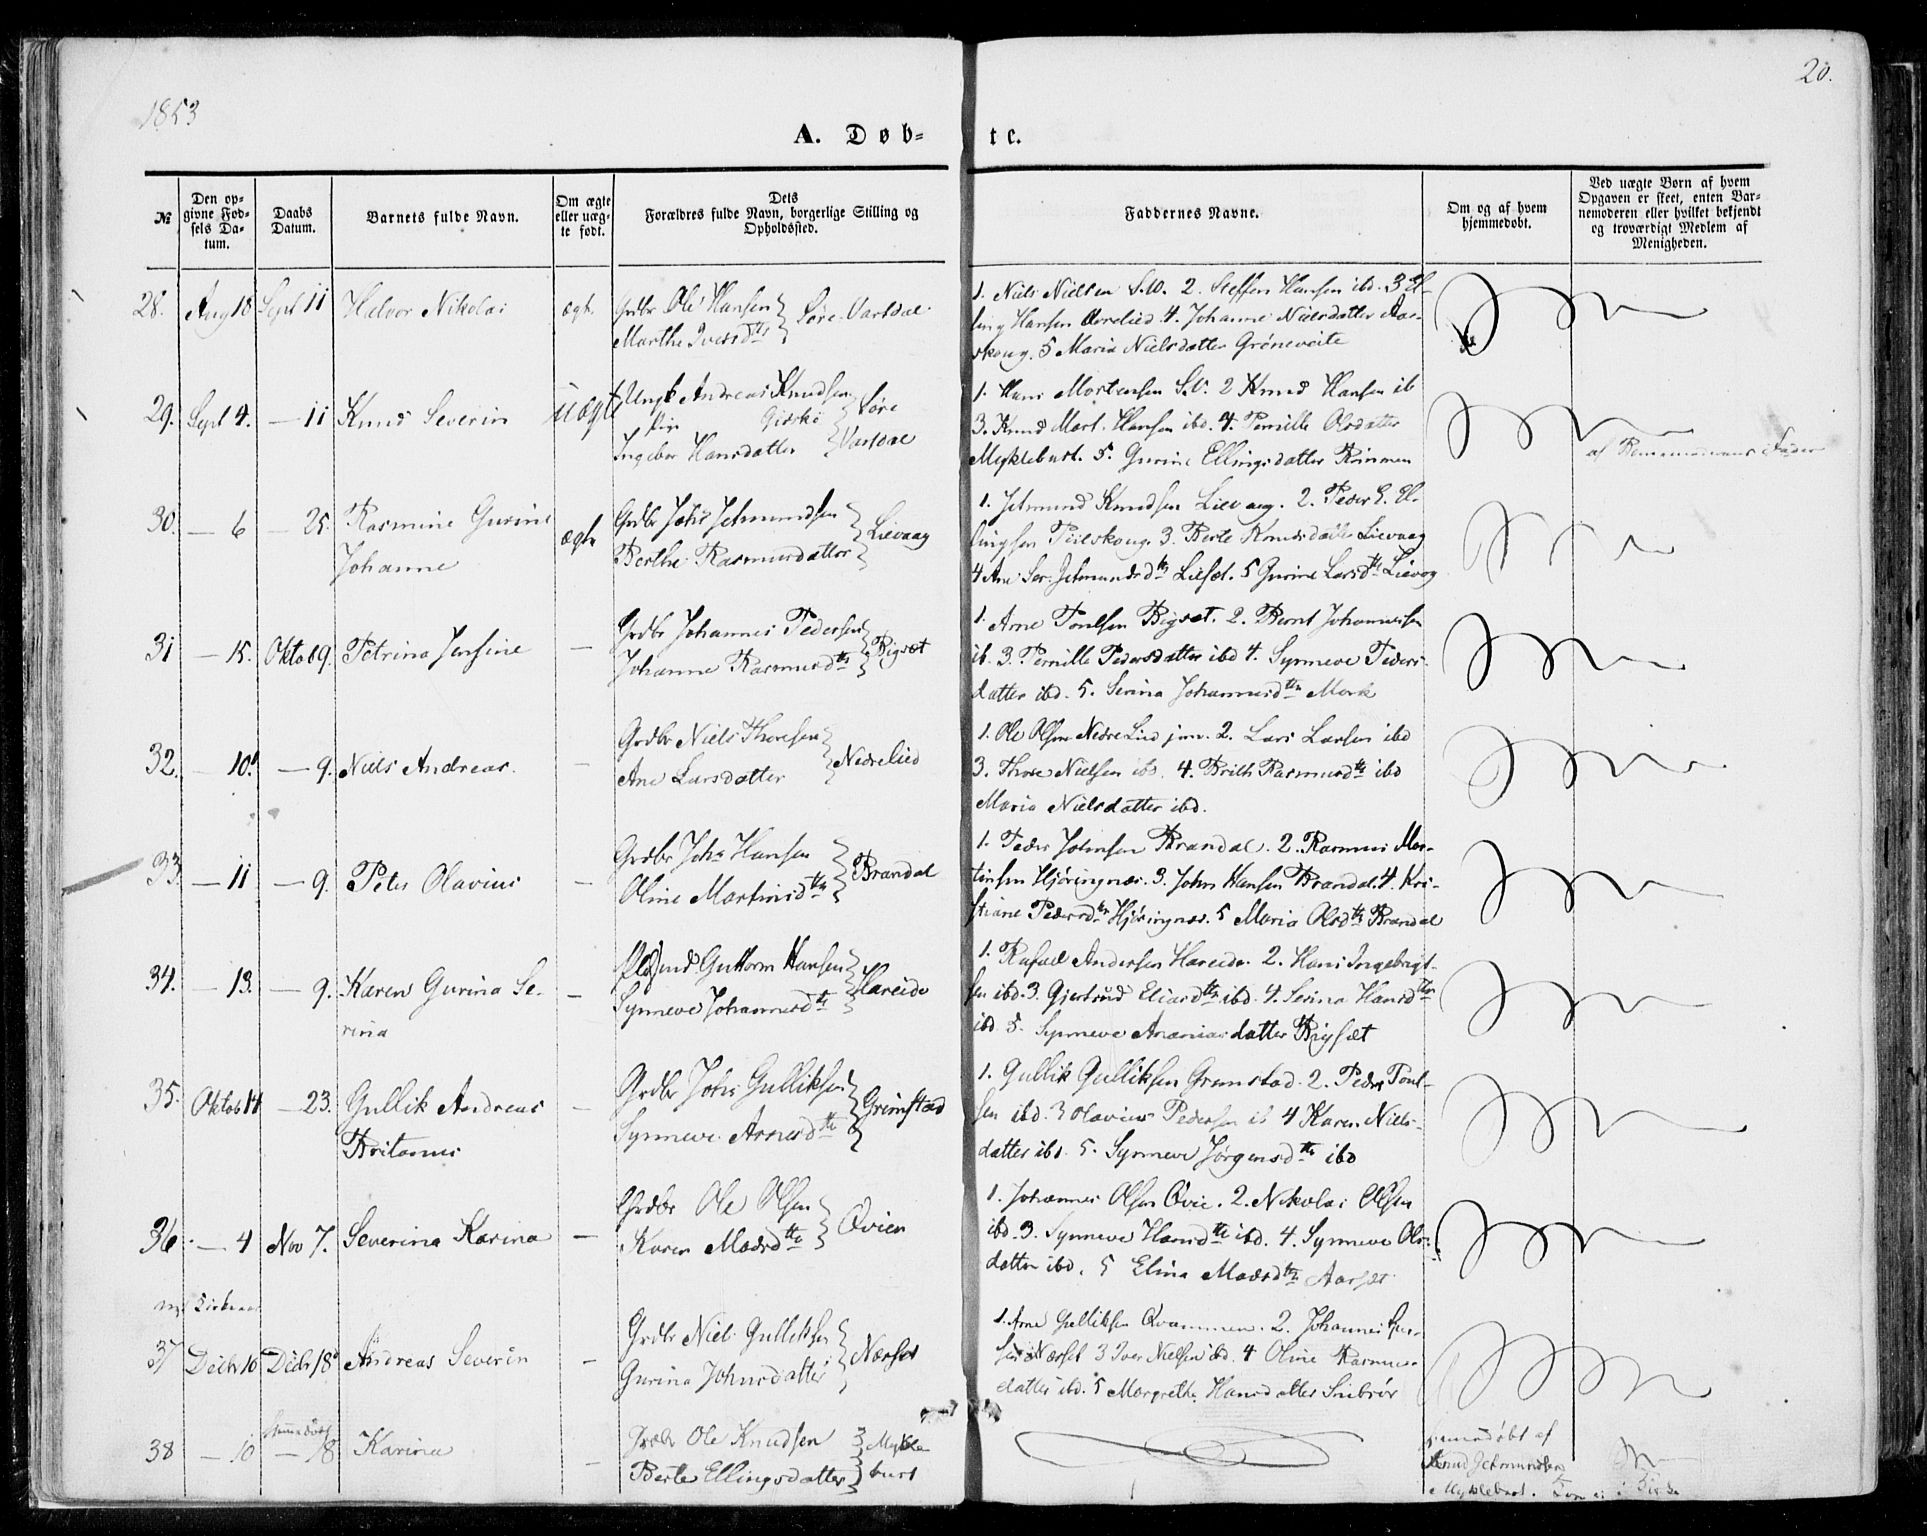 1853
20.
A. Døb-
te.
№
Den op-
givne Fød-
sels Da-
tum.
Daabs
Datum.
Barnets fulde Navn.
Om ægte
eller uæg-
te født.
Dets
Forældres fulde Navn, borgerlige Stilling og
Opholdssted.
Faddernes Navne.
Om og af hvem
hjemmedøbt.
Ved uægte Børn af hvem
Opgaven er skeet, enten Bar-
nemoderen eller hvilket bekjendt
og troværdigt Medlem af
Menigheden.
28. Aug 18 Sept 11 Halvor Nikolai ægte Grdbr Ole Hansen Søre Vartdal
Marthe Iversdtr
1. Niels Nielsen S.V. 2. Steffen Hansen ibd. 3 El-
ling Hansen 4. Johanne Nielsdatter Aar-
skoug. 5 Maria Nielsdatter Grøneveite
29. Sept 4. — 11 Knud Severin uægte Ungk Andreas Knudsen Søre
Pige Giskø
Ingebor Hansdatter Vartdal
1. Hans Mortensen S.V. 2 Knud Hansen ib
3. Knud Mart. Hansen ibd. 4. Pernille Olsdatter
Myklebust. 5. Gurine Ellingsdatter
af Barnemoderens Fader
30. — 6 — 25. Rasmine Gurine
Johanne
ægte Grdbr Johs Jetmundsen Lievaag
Berthe Rasmusdatter
1. Jetmund Knudsen Lievaag. 2. Peder E. El-
lingsen Pilskoug. 3. Berte Knudsdatter Lievaag
4 Ane Ser. Jetmundsdtr Liset. 5 Gurine Larsdtr Lievag
31 — 15. Oktob 9. Petrina Jensine — Grdbr Johannes Pedersen Bigsæt
Johanne Rasmusdtr
1. Arne Poulsen Bigsæt. 2. Bernt Johannessen
ib. 3. Pernille Pedersdatter ibd 4. Synneve Peders-
datter ibd. 5. Serina Johannesdtr Mork
32. — 10. — 9. Niels Andreas. — Grdbr Niels Thoresen Nedrelied
Ane Larsdatter
1. Ole Olsen Nedre Lied jun. 2. Lars Larsen ibd
3. Thore Nielsen ibd. 4. Brith Rasmusdtr ibd
Maria Nielsdatter ibd.
33 — 11 — 9. Peter Olavius — Grdbr Johs Hansen Brandal
Oline Martinsdtr
1. Peder Johnsen Brandal. 2. Rasmus Mar-
tinsen Hjøringnæs. 3. John Hansen Brandal. 4. Kri-
stiane Pedersdtr Hjøringnæs. 5 Maria Olsdtr Brandal
34. — 13. — 9. Karen Gurina Se-
rina
— Guttorm Hansen Hareide
Synneve Johannesdtr
1. Rafael Andersen Hareide. 2. Hans Ingebrigt-
sen ibd. 3. Gjertrud Eliasdtr ibd. 4. Serina Hansdtr
ibd 5. Synneve Ananiasdatter Bigset
35. Oktob 14 — 23. Gullik Andreas
Britanus
— Grdbr Johs Gulliksen Grimstad
Synneve Arnesdtr
1. Gullik Gulliksen Grimstad. 2. Peder Poul-
sen ibd. 3 Olavius Pedersen ib 4 Karen Niels-
datter ibd. 5. Synneve Jørgensdtr ibd
36. — 4 Nov 7. Severina Karina — Grdbr Ole Olsen Qvien
Karen Madsdtr
1. Johannes Olsen Qvie. 2. Nikolai Olsen
ibd. 3. Synneve Hansdtr ibd. 4. Synneve Ols-
datter ibd. 5 Elina Madsdtr Aarset
37 Decbr 10 Decbr 18 Andreas Severin — Grdbr Niels Gulliksen Nærset
Gurina Johnsdatter
1. Arne Gulliksen Qvammen. 2. Johannes
Nærset 3 Iver Nielsen ibd. 4 Oline Rasmus-
datter ibd. 5 Margrethe Hansdatter
38 — 10 — 18 Karina — Grdbr Ole Knudsen Mykle-
Berte Ellingsdatter bust
hjemmedøbt af
Knud Jetmundsen
Myklebust.